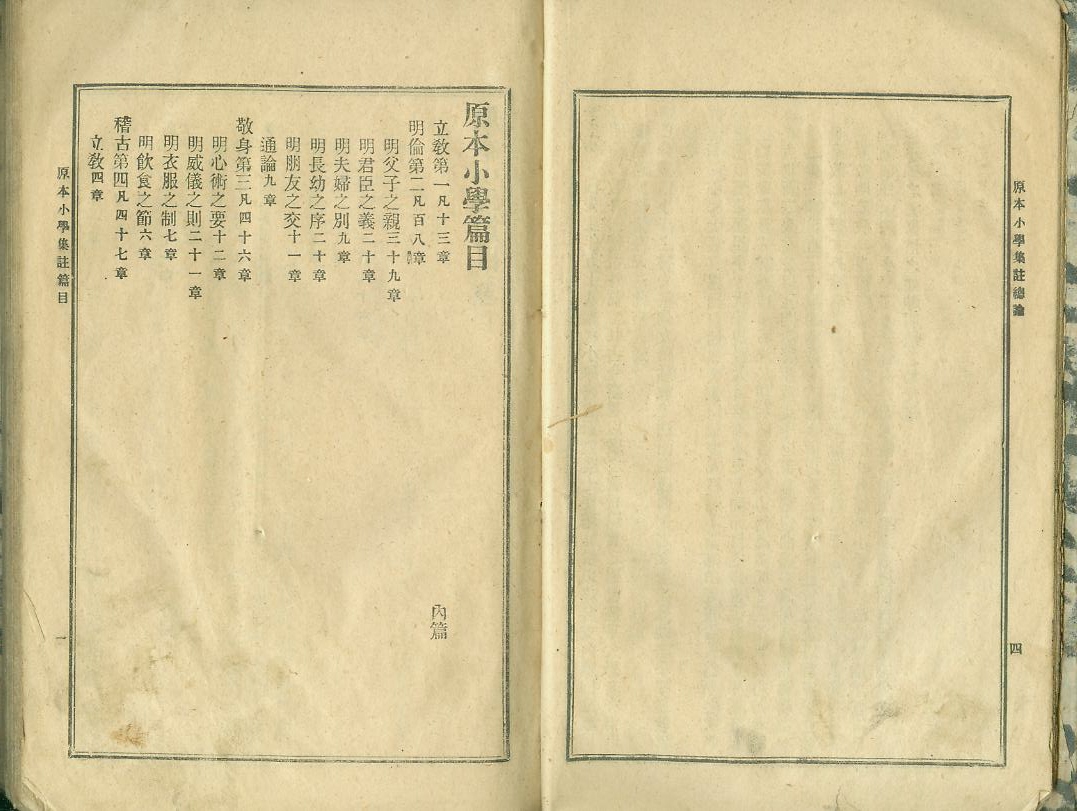 原本小學集註總論
四
原本小學篇目
立敎第一凡十三章
內篇
明倫第二凡百八章
明父子之親三十九章
明君臣之義二十章
明夫婦之別九章
明長幼之序二十章
明朋友之交十一章
通論九章
敬身第三凡四十六章
明心術之要十二章
明威儀之則二十一章
明衣服之制七章
明飮食之節六章
稽古第四凡四十七章
立敎四章
原本小學集註篇目
一